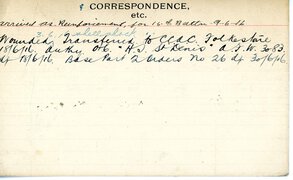 CORRESPONDENCE,
etc.
arrived as Reinforcement, for 16th Battn 9-6-16
3/6/16 shell shock
Wounded, Transferred to CCAC. Folkestone
18/6/16. Authy O.C. "H.S. St Denis" A.F.W. 3083.
df 18/6/16. Base Part 2 Orders No 26 df 30/6/16.